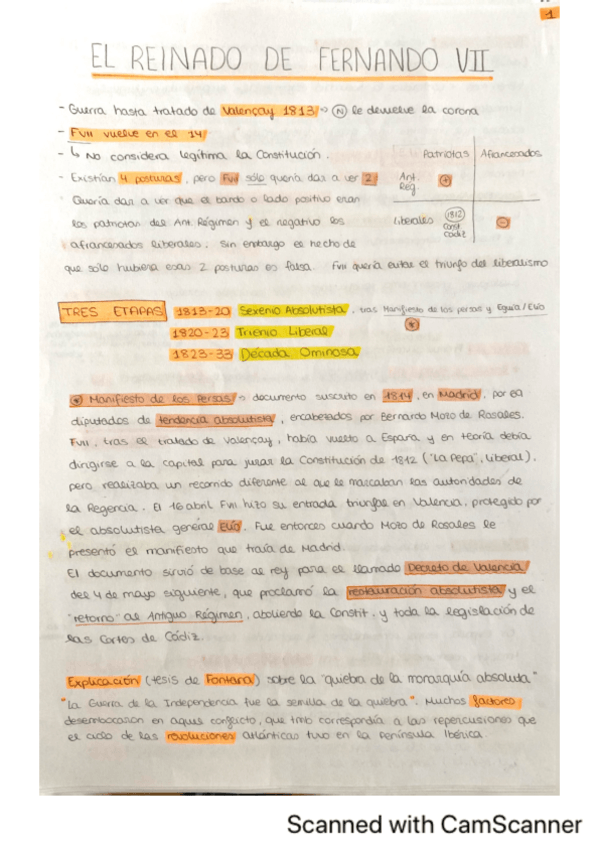 1
EL REINADO DE FERNANDO VII
- Guerra hasta tratado de Valençay 1813 → N le devuelve la corona
- FVII vuelve en el 14
- ↳ No considera legítima la Constitución.
Patriotas | Afrancesados
- Existían 4 posturas, pero FVII sólo quería dar a ver 2
Ant. Rég. +
Quería dar a ver que el bando o lado positivo eran
los patriotas del Ant. Régimen y el negativo los
liberales 1812 Const Cádiz -
afrancesados liberales. Sin embargo el hecho de
que sólo hubiera esas 2 posturas es falsa. FVII quería evitar el triunfo del liberalismo
TRES ETAPAS 1813-20 Sexenio Absolutista, tras Manifiesto de los persas y Eguía/Elío
*
1820-23 Trienio Liberal
1823-33 Década Ominosa
* Manifiesto de los Persas → documento suscrito en 1814, en Madrid, por 69
diputados de tendencia absolutista, encabezados por Bernardo Mozo de Rosales.
FVII, tras el tratado de Valençay, había vuelto a España y en teoría debía
dirigirse a la capital para jurar la Constitución de 1812 ("La Pepa", liberal),
pero realizaba un recorrido diferente al que le marcaban las autoridades de
la Regencia. El 16 abril FVII hizo su entrada triunfal en Valencia, protegido por
el absolutista general Elío. Fue entonces cuando Mozo de Rosales le
presentó el manifiesto que traía de Madrid.
El documento sirvió de base al rey para el llamado Decreto de Valencia
del 4 de mayo siguiente, que proclamó la restauración absolutista y el
"retorno" al Antiguo Régimen, aboliendo la Constit. y toda la legislación de
las Cortes de Cádiz.
Explicación (tesis de Fontana) sobre la "quieba de la monarquía absoluta"
"La Guerra de la Independencia fue la semilla de la quiebra". Muchos factores
desembocaron en aquel conflicto, que tmb correspondía a las repercusiones que
el ciclo de las revoluciones atlánticas tuvo en la Península Ibérica.
Scanned with CamScanner